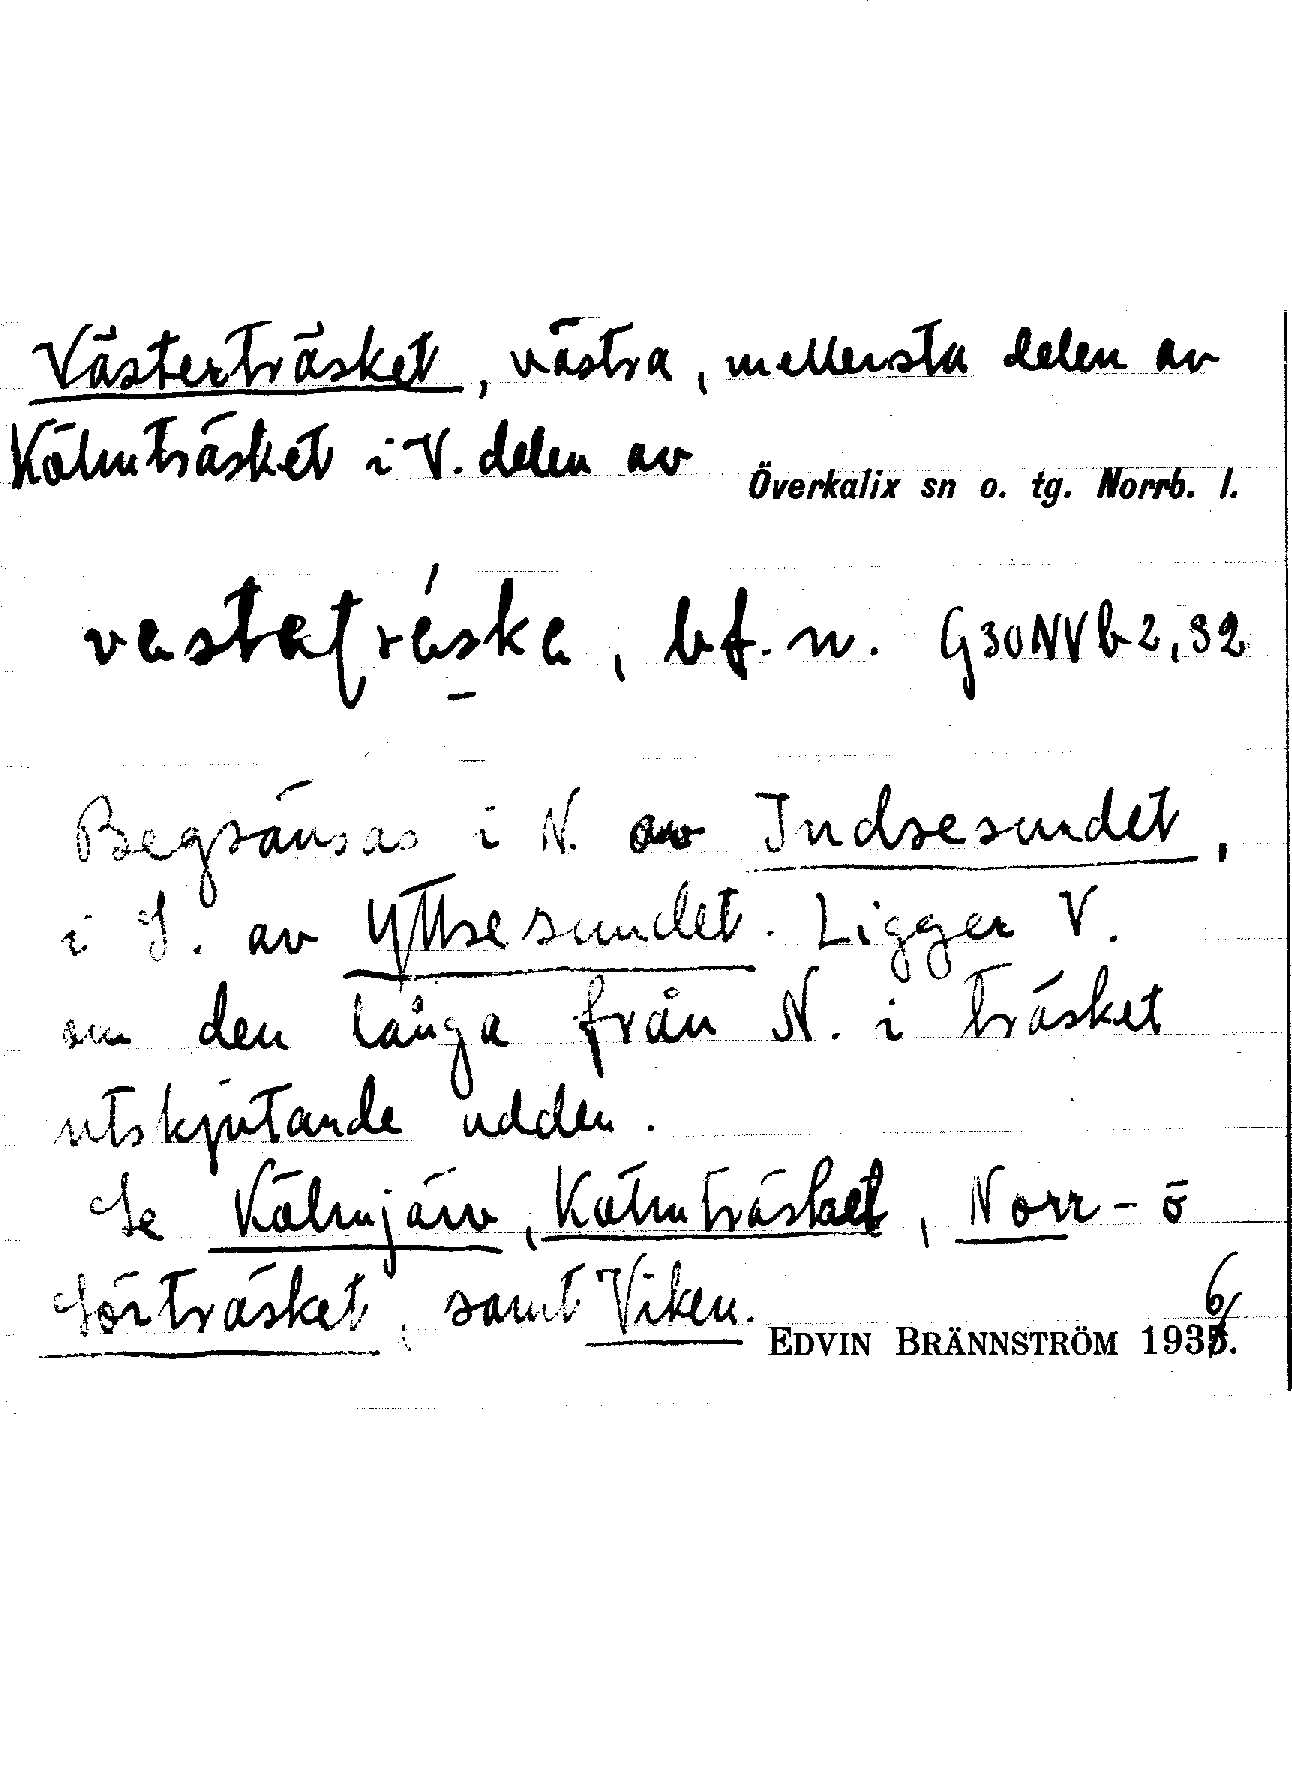 Västerträsket, västra, mellersta delen av
Kölmträsket i V. delen av
Överkalix sn o. tg. Norrb. l.
bf. n. G30NVb2,32
Begränsas i N. av Indresundet,
i S. av Yttresundet. Ligger V.
om den långa från N. i träsket
utskjutande udden.
Se Kölmjärv, Kölmträsket, Norr- o
Sörträsket, samt Viken.
EDVIN BRÄNNSTRÖM 1936.